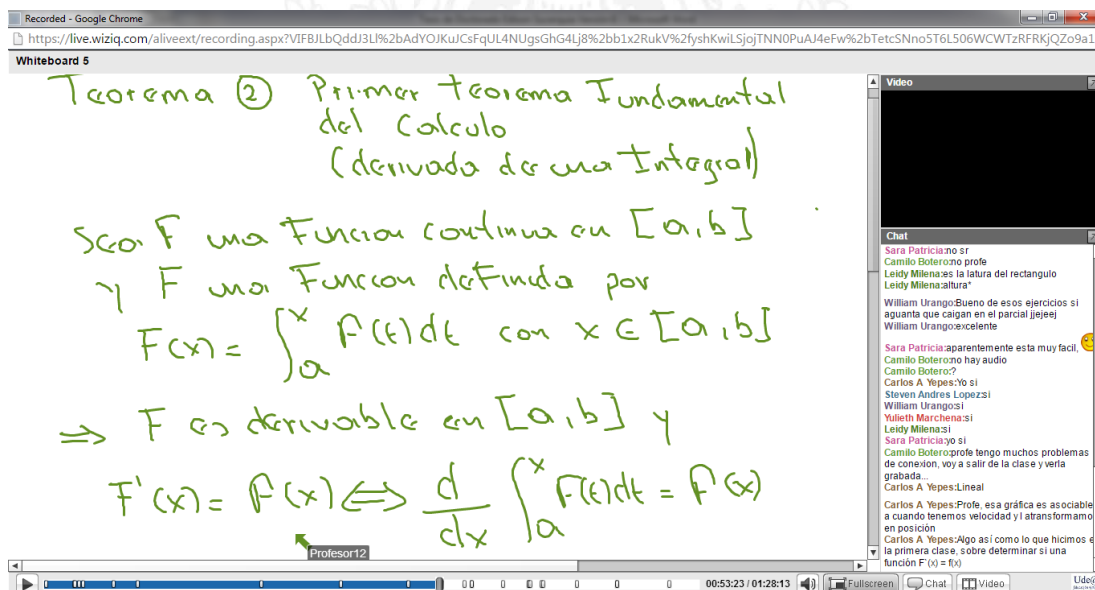 Recorded - Google Chrome
https://live.wiziq.com/aliveext/recording.aspx?VIFBJLbQddJ3Ll%2bAdYOJKuJCsFqUL4NUgsGhG4Lj8%2bb1x2RukV%2fyshKwiLSjojTNN0PuAJ4eFw%2bTetcSNno5T6L506WCWTzRFRKjQZo9a1
Whiteboard 5
Teorema ② Primer teorema Fundamental
del Calculo
(derivada de una Integral)
Sea f una Funcion continua en [a,b]
y F una Funcion definida por
F(x) = ∫ₐˣ f(t)dt con x ∈ [a,b]
⇒ F es derivable en [a,b] y
F'(x) = f(x) ⇔ d/dx ∫ₐˣ f(t)dt = f(x)
Profesor12
Video
Chat
Sara Patricia:no sr
Camilo Botero:no profe
Leidy Milena:es la latura del rectangulo
Leidy Milena:altura*
William Urango:Bueno de esos ejercicios si
aguanta que caigan en el parcial jjejeej
William Urango:excelente
Sara Patricia:aparentemente esta muy facil,
Camilo Botero:no hay audio
Camilo Botero:?
Carlos A Yepes:Yo si
Steven Andres Lopez:si
William Urango:si
Yulieth Marchena:si
Leidy Milena:si
Sara Patricia:yo si
Camilo Botero:profe tengo muchos problemas
de conexion, voy a salir de la clase y verla
grabada...
Carlos A Yepes:Lineal
Carlos A Yepes:Profe, esa gráfica es asociable
a cuando tenemos velocidad y l atransformamo
en posición
Carlos A Yepes:Algo así como lo que hicimos e
la primera clase, sobre determinar si una
función F`(x) = f(x)
00:53:23 / 01:28:13
Fullscreen
Chat
Video